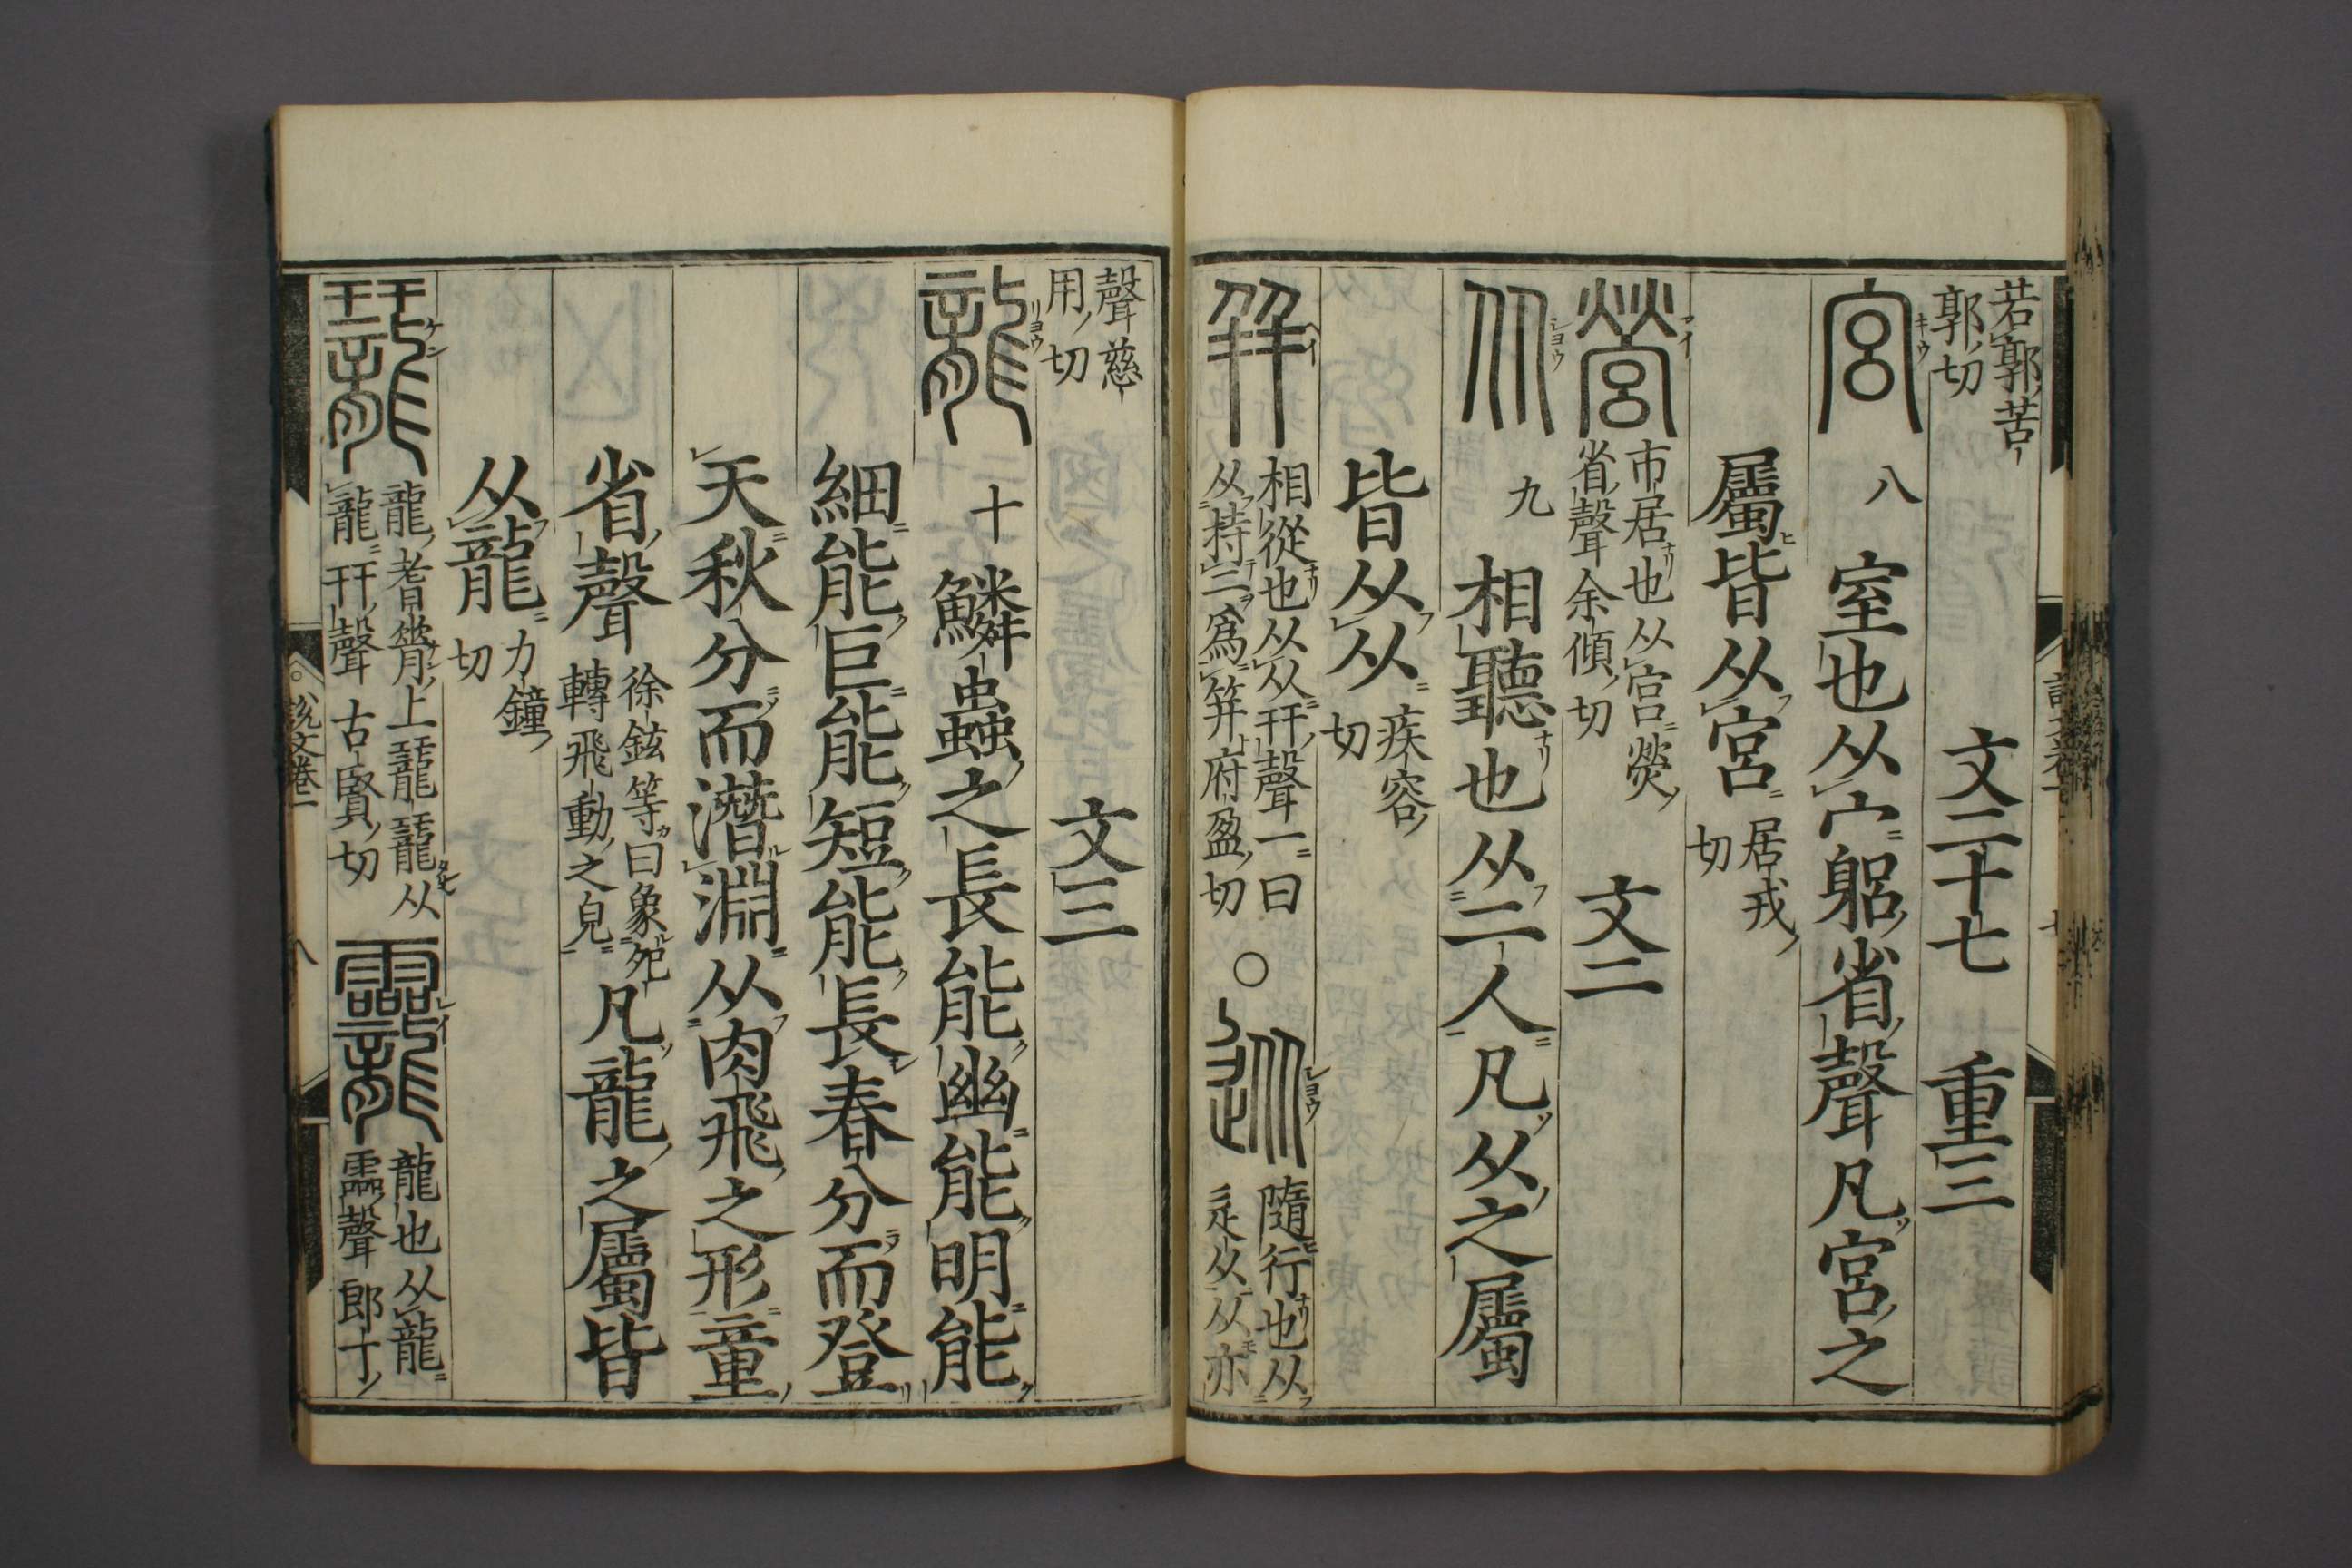 若郭苦
郭切
文二十七　重三
宮キウ　八　室也从宀躳省聲凡宮之
屬皆从宮居戎
切
營　市居也从宮熒
省聲余傾切　文二
从シヨウ　九　相聽也从二人凡从之屬
皆从从疾容
切
幷ヘイ　相從也从从幵聲一曰
从持二爲幷府盈切
○
從シヨウ　隨行也从
辵从从亦
聲慈
用切
文三
龍リヨウ　十　鱗蟲之長能幽能明能
細能巨能短能長春分而登
天秋分而潛淵从肉飛之形童
省聲徐鉉等曰象夗
轉飛動之皃凡龍之屬皆
从龍力鐘
切
龖ケン　龍耆脊上龖龖从
龍幵聲古賢切
龗レイ　龍也从龍
霝聲郎丁
說文卷一　八